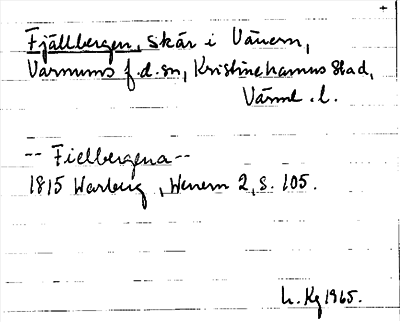 Fjällbergen, skär i Vänern,
Varnums f.d. sn, Kristinehamns stad,
Värml. l.
-- Fielbergena --
1815 Warberg, Wenern 2, s. 105.
L. Kg 1965.